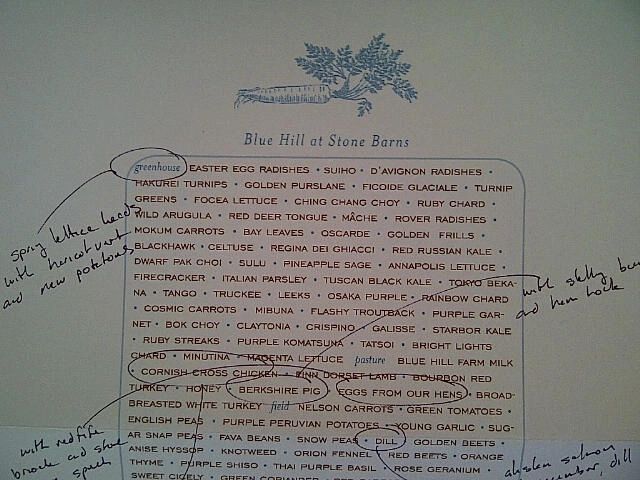 Blue Hill at Stone Barns
greenhouse EASTER EGG RADISHES • SUIHO • D'AVIGNON RADISHES •
HAKUREI TURNIPS • GOLDEN PURSLANE • FICOIDE GLACIALE • TURNIP
GREENS • FOCEA LETTUCE • CHING CHANG CHOY • RUBY CHARD •
WILD ARUGULA • RED DEER TONGUE • MÂCHE • ROVER RADISHES •
MOKUM CARROTS • BAY LEAVES • OSCARDE • GOLDEN FRILLS •
BLACKHAWK • CELTUSE • REGINA DEI GHIACCI • RED RUSSIAN KALE •
DWARF PAK CHOI • SULU • PINEAPPLE SAGE • ANNAPOLIS LETTUCE •
FIRECRACKER • ITALIAN PARSLEY • TUSCAN BLACK KALE • TOKYO BEKA-
NA • TANGO • TRUCKEE • LEEKS • OSAKA PURPLE • RAINBOW CHARD
• COSMIC CARROTS • MIBUNA • FLASHY TROUTBACK • PURPLE GAR-
NET • BOK CHOY • CLAYTONIA • CRISPINO • GALISSE • STARBOR KALE
• RUBY STREAKS • PURPLE KOMATSUNA • TATSOI • BRIGHT LIGHTS
CHARD • MINUTINA • MAGENTA LETTUCE pasture BLUE HILL FARM MILK
• CORNISH CROSS CHICKEN • FINN DORSET LAMB • BOURBON RED
TURKEY • HONEY • BERKSHIRE PIG • EGGS FROM OUR HENS • BROAD-
BREASTED WHITE TURKEY field NELSON CARROTS • GREEN TOMATOES •
ENGLISH PEAS • PURPLE PERUVIAN POTATOES • YOUNG GARLIC • SUG-
AR SNAP PEAS • FAVA BEANS • SNOW PEAS • DILL • GOLDEN BEETS •
ANISE HYSSOP • KNOTWEED • ORION FENNEL • RED BEETS • ORANGE
THYME • PURPLE SHISO • THAI PURPLE BASIL • ROSE GERANIUM •
SWEET CICELY • GREEN CORIANDER
spring lettice heads
with haricot vert
and new potatoes
and hem hock
with red fife
alaskan salmon
dill